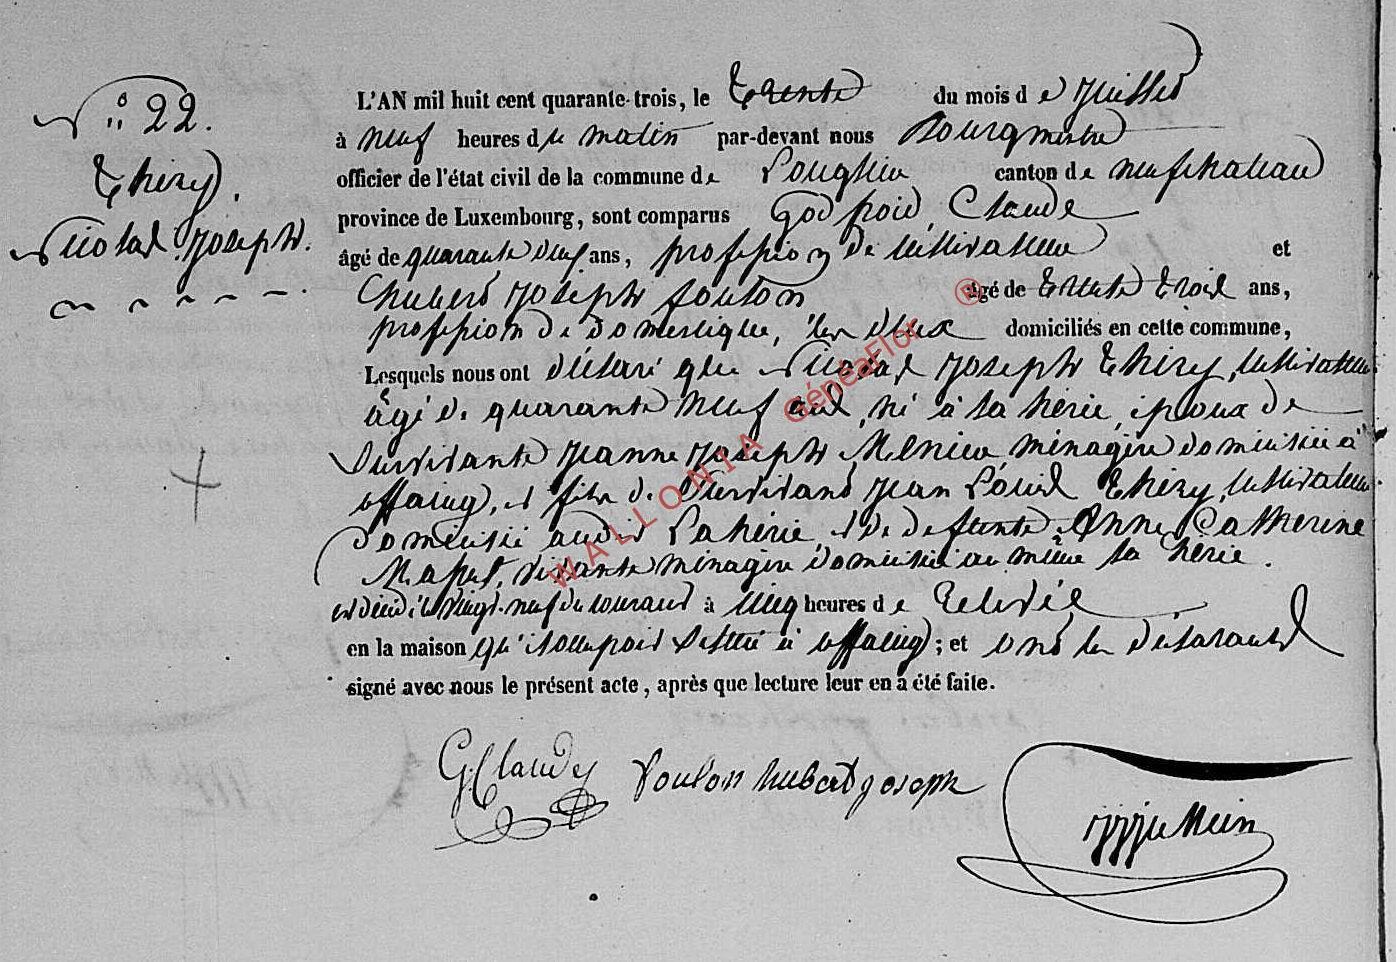 N° 22.
Thiry,
Nicolas Joseph.
L'AN mil huit cent quarante-trois, le trente du mois de juillet
à neuf heures du matin par-devant nous Bourgmestre
officier de l'état civil de la commune de Longlier canton de neufchateau
province de Luxembourg, sont comparus Godfroid Claude
âgé de quarante neuf ans, profession de cultivateur et
Hubert Joseph foulon âgé de trente trois ans,
profession de domestique, les deux domiciliés en cette commune,
Lesquels nous ont déclaré que Nicolas Joseph Thiry, cultivateur
âgé de quarante neuf ans, né à la hérie, époux de
survivante jeanne joseph ménagère domiciliée à
offaing, et fils de survivant jean Louis Thiry, cultivateur
domicilié audit Lahérie, et de defunte Anne Catherine
vivante ménagère domiciliée au même la hérie.
est décédé le vingt-neuf du courant à cinq heures de relevée
en la maison qu'il occupait située à offaing; et ont les déclarants
signé avec nous le présent acte, après que lecture leur en a été faite.
G Claude foulon hubert joseph
WALLONIA GénéaFlor ®